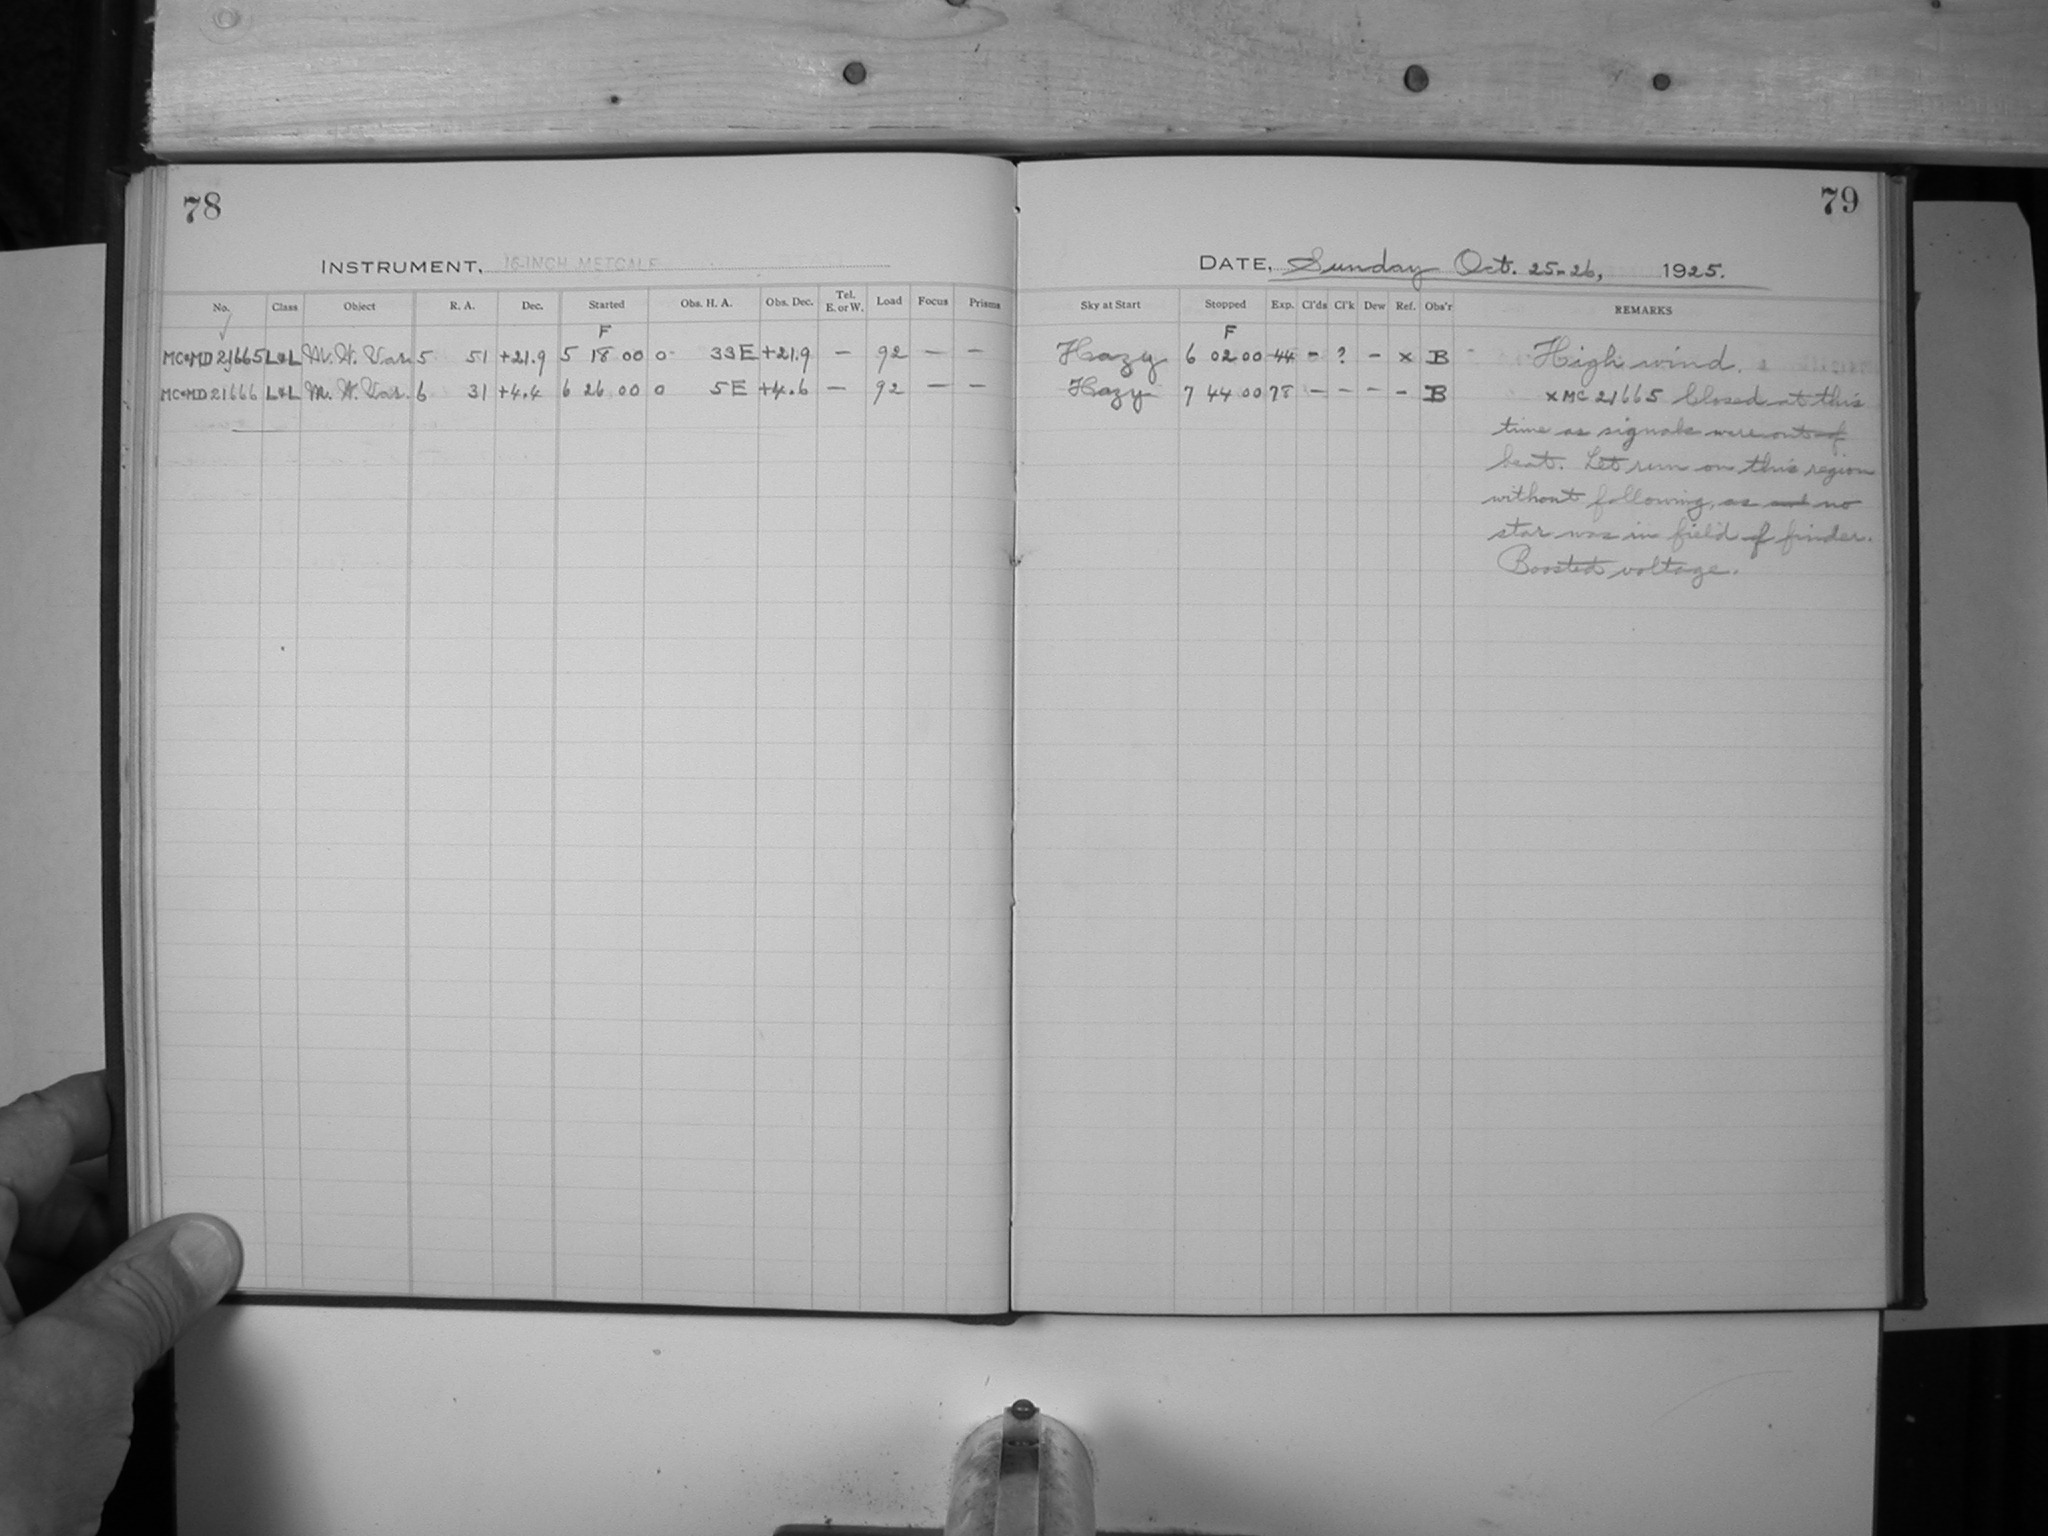 78
INSTRUMENT, 16-INCH METCALF
No. Class Object R. A. Dec. Started Obs. H. A. Obs. Dec. Tel. E. or W. Load Focus Prisms
F
MC&MD 21665 L&L M. W. Var. 5 51 +21.9 5 18 00 0 33 E +21.9 — 92 — —
MC&MD 21666 L&L M. W. Var. 6 31 +4.4 6 26 00 0 5 E +4.6 — 92 — —
79
DATE, Sunday Oct. 25-26, 1925.
Sky at Start Stopped Exp. Cl'ds Cl'k Dew Ref. Obs'r REMARKS
F
Hazy 6 02 00 44 - ? - x B High wind.
Hazy 7 44 00 78 - - - - B x MC 21665 Closed at this
time as signals were out of
beat. Let run on this region
without following, as and no
star was in field of finder.
Boosted voltage.